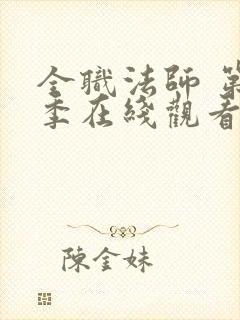 全職法師 第
季在綫觀看
陳金妹